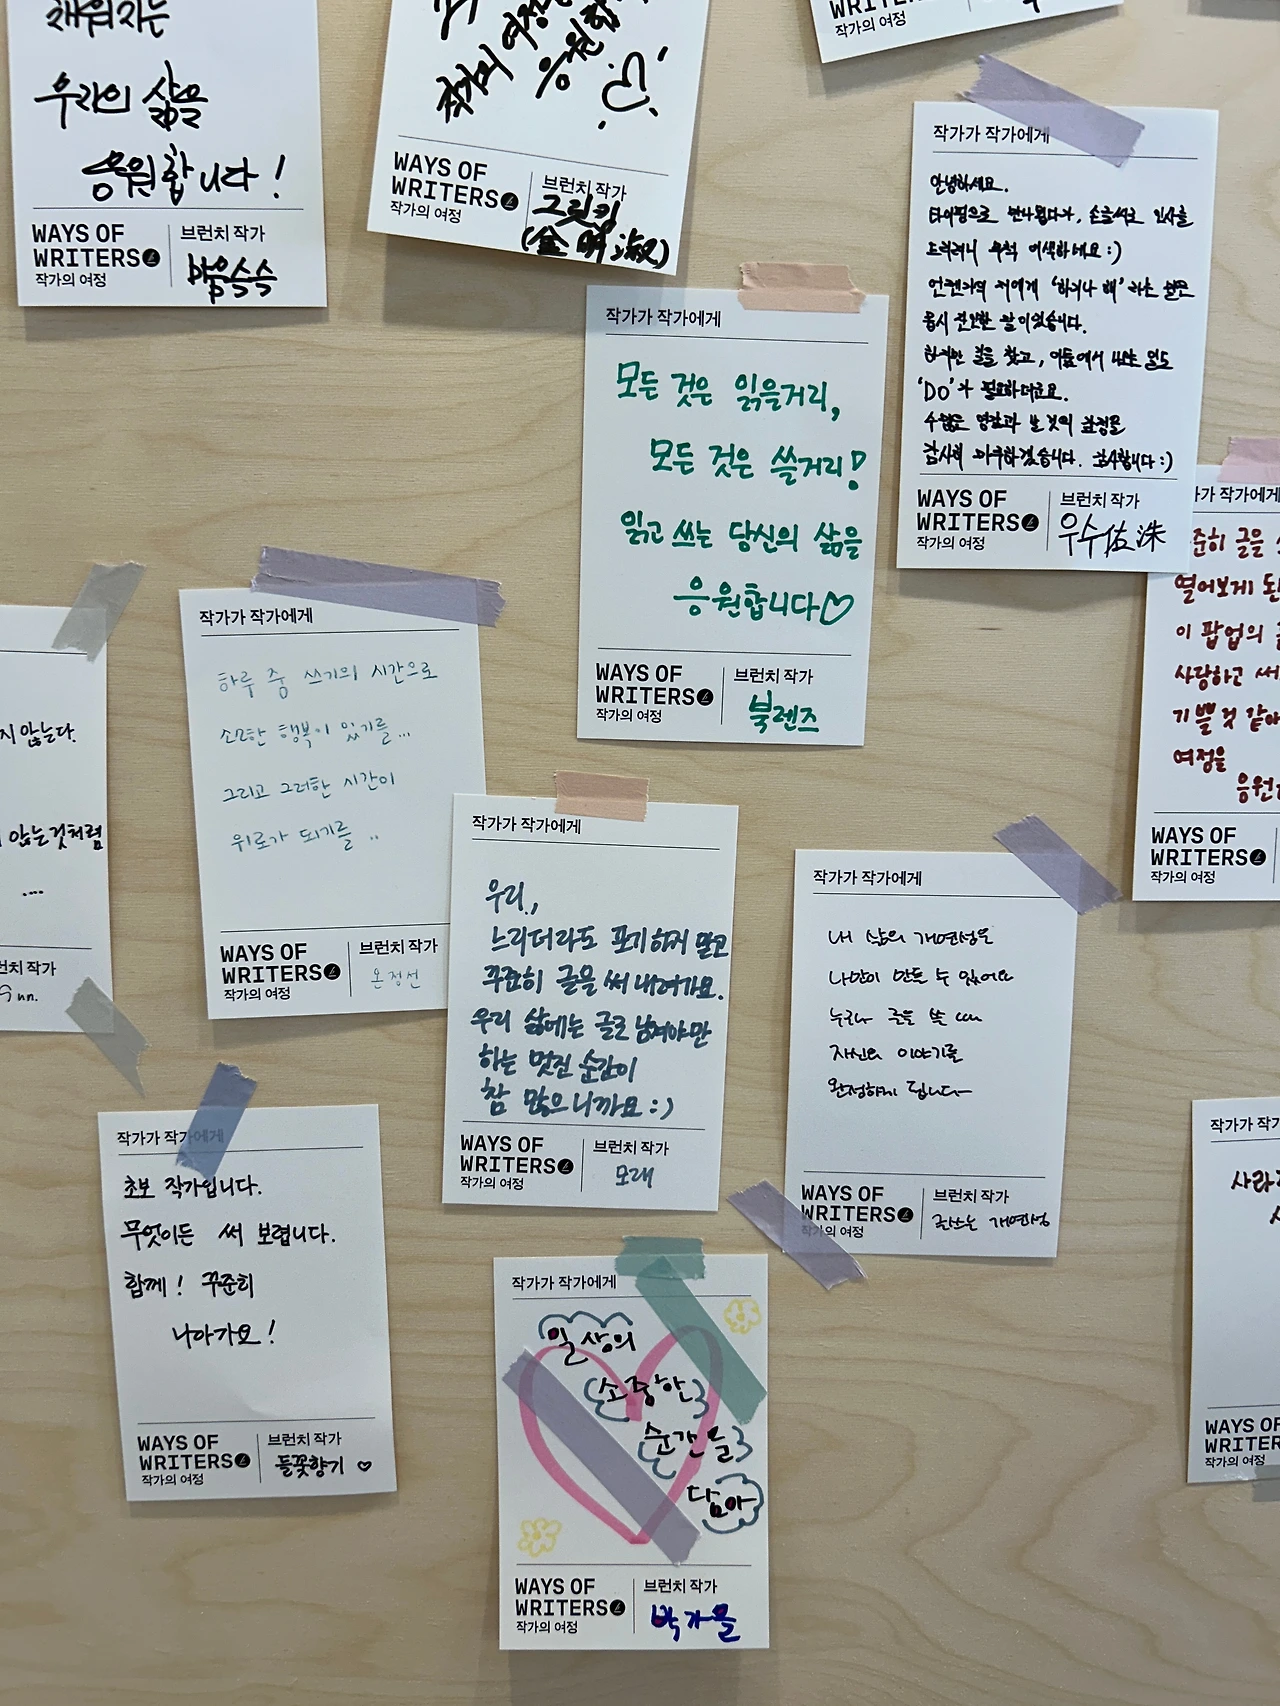 채워지는
우리의 삶을
응원합니다!
WAYS OF
WRITERS
작가의 여정
브런치 작가
맑음슥슥
작가의 여정
응원합
WAYS OF
WRITERS
작가의 여정
브런치 작가
그릿킴
(金明淑)
WRITERS
작가의 여정
작가가 작가에게
안녕하세요.
타이핑으로 만나뵙다가, 손글씨로 인사를
드리려니 무척 어색하네요 :)
언젠가의 저에게 '하거나 해' 라는 말은
몹시 진부한 말이었습니다.
하지만 길을 찾고, 어둠에서 나오는 일도
'DO'가 필요하더군요.
수많은 영감과 날 것의 표정을
감사히 마주하겠습니다. 감사합니다 :)
WAYS OF
WRITERS
작가의 여정
브런치 작가
우수佐洙
작가가 작가에게
모든 것은 읽을거리,
모든 것은 쓸거리!
읽고 쓰는 당신의 삶을
응원합니다♡
WAYS OF
WRITERS
작가의 여정
브런치 작가
북렌즈
가 작가에게
준히 글을
열어보게 된
이 팝업의
사랑하고 써
기쁠 것 같아
여정을
응원
WAYS OF
WRITERS
작가의 여정
지 않는다.
않는것처럼
....
브런치 작가
작가가 작가에게
하루 중 쓰기의 시간으로
소소한 행복이 있기를...
그리고 그러한 시간이
위로가 되기를 ..
WAYS OF
WRITERS
작가의 여정
브런치 작가
온정선
작가가 작가에게
우리,
느리더라도 포기하지 말고
꾸준히 글을 써 내려가요.
우리 삶에는 글로 남겨야만
하는 멋진 순간이
참 많으니까요 :)
WAYS OF
WRITERS
작가의 여정
브런치 작가
모래
작가가 작가에게
내 삶의 개연성은
나만이 만들 수 있어요
누구나 글을 쓸 때
자신의 이야기를
완성하게 됩니다
WAYS OF
WRITERS
작가의 여정
브런치 작가
글쓰는 개연성
작가가 작가에게
초보 작가입니다.
무엇이든 써 보렵니다.
함께! 꾸준히
나아가요!
WAYS OF
WRITERS
작가의 여정
브런치 작가
들꽃향기 ♡
작가가 작가에게
일상의
소중한
순간들
담아
WAYS OF
WRITERS
작가의 여정
브런치 작가
박가몰
작가가 작가
사라
WAYS OF
WRITERS
작가의 여정